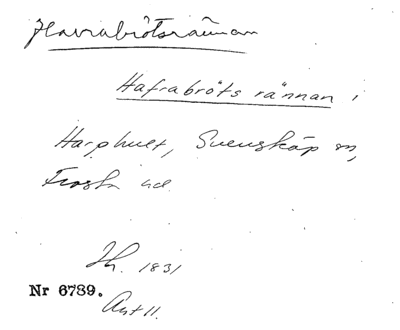 Havrabrötsrännan
Hafrabröts rännan i
Harphult, Svensköp sn,
Frosta hd.
Jh. 1831
Nr 6789.
Avt 11.